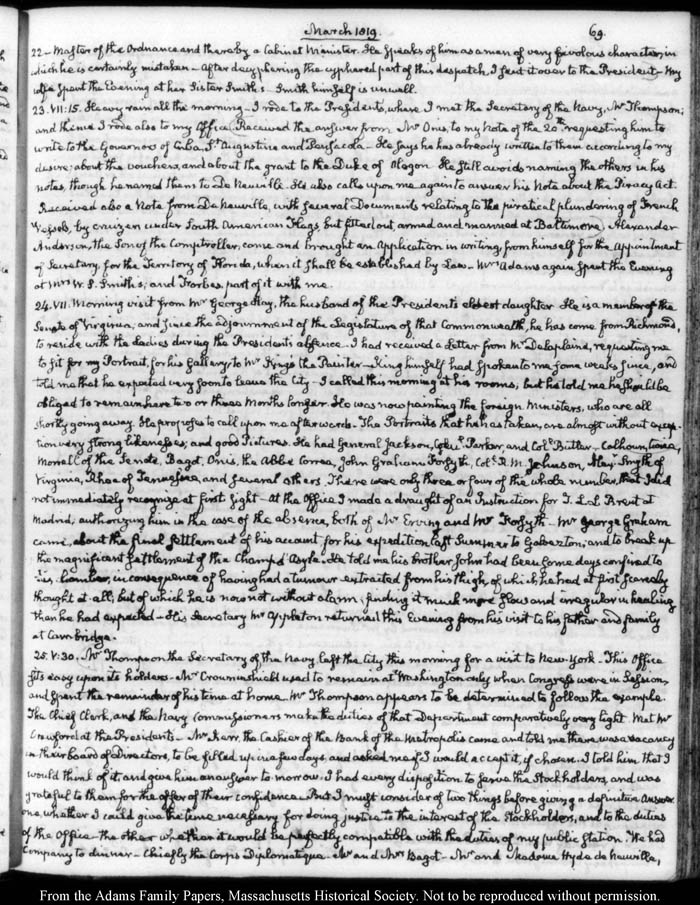 March 1819. 69.
22 - Master of the Ordnance and thereby a Cabinet Minister. He speaks of him as a man of very frivolous character, in
which he is certainly mistaken - After decyphering the cyphered part of this despatch I sent it over to the President - My
wife spent the Evening at her Sister Smith's - Smith himself is unwell.
23. VII:15. Heavy rain all the morning - I rode to the President's, where I met the Secretary of the Navy, Mr Thompson;
and thence I rode also to my Office. Received the answer from Mr Onis, to my Note of the 20th requesting him to
write to the Governors of Cuba, St Augustine and Pensacola - He says he has already written to them according to my
desire; about the vouchers, and about the grant to the Duke of Alagon. He still avoids naming the others in his
Notes, though he named them to De Neuville. He also calls upon me again to answer his Note about the Piracy Act.
Received also a Note from De Neuville, with several Documents relating to the piratical plundering of French
Vessels, by cruizers under South American Flags, but fitted out, armed and manned at Baltimore. Alexander
Anderson, the Son of the Comptroller, came and brought an Application in writing, from himself for the appointment
of Secretary for the Territory of Florida, when it shall be established by Law - Mrs Adams again spent the Evening
at Mrs W. S. Smith's; and Forbes, part of it with me.
24. VII. Morning visit from Mr George Hay, the husband of the President's eldest daughter. He is a member of the
Senate of Virginia, and since the adjournment of the Legislature of that Commonwealth, he has come from Richmond,
to reside with the Ladies during the President's absence - I had received a Letter from Mr Delaplaine, requesting me
to sit for my Portrait, for his Gallery, to Mr King the Painter - King himself had spoken to me some weeks since, and
told me that he expected very soon to leave the City - I called this morning at his rooms, but he told me he should be
obliged to remain here two or three Months longer. He was now painting the foreign Ministers, who are all
shortly going away. He proposes to call upon me afterwards. The Portraits that he has taken, are almost without excep-
tion very strong likenesses; and good Pictures. He had General Jackson, Parker, and Colo Butler - Calhoun,
Morrill of the Senate, Bagot, Onis, the Abbé Correa, John Graham, Forsyth, Colo R. M. Johnson, Alexr Smyth of
Virginia, Rhea of Tennessee, and several others. There were only three or four of the whole number, that I did
not immediately recognize at first sight - At the Office I made a draught of an Instruction for T. L. L. Brent at
Madrid, authorizing him in the case of the absence, both of Mr Erving and Mr Forsyth - Mr George Graham
came, about the final settlement of his account for his expedition last Summer to Galvezton; and to break up
the magnificent settlement of the Champ d'Asyle. He told me his brother John had been some days confined to
his chamber, in consequence of having had a tumour extracted from his thigh, of which he had at first scarcely
thought at all; but of which he is now not without alarm; finding it much more slow and irregular in healing
than he had expected - His Secretary Mr Appleton returned this Evening from his visit to his father and family
at Cambridge.
25. V:30. Mr Thompson the Secretary of the Navy, left the City this morning for a visit to New-York - This Office
sits easy upon its holders - Mr Crowninshield used to remain at Washington only when Congress were in Session,
and spent the remainder of his time at home. Mr Thompson appears to be determined to follow the example.
The Chief Clerk, and the Navy Commissioners make the duties of that Department comparatively very light. Met Mr
Crawford at the President's - Mr Kerr, the Cashier of the Bank of the Metropolis came and told me there was a vacancy
in their board of Directors, to be filled up in a few days, and asked me if I would accept it, if chosen. I told him that I
would think of it, and give him an answer to-morrow. I had every disposition to serve the Stockholders, and was
grateful to them for the offer of their confidence - But I must consider of two things before giving a definitive answer
one, whether I could give the time necessary for doing justice to the interest of the Stockholders, and to the duties
of the Office - the other whether it would be perfectly compatible with the duties of my public station. We had
Company to dinner - Chiefly the Corps Diplomatique - Mr and Mrs Bagot - Mr and Madame Hyde de Neuville,
From the Adams Family Papers, Massachusetts Historical Society. Not to be reproduced without permission.